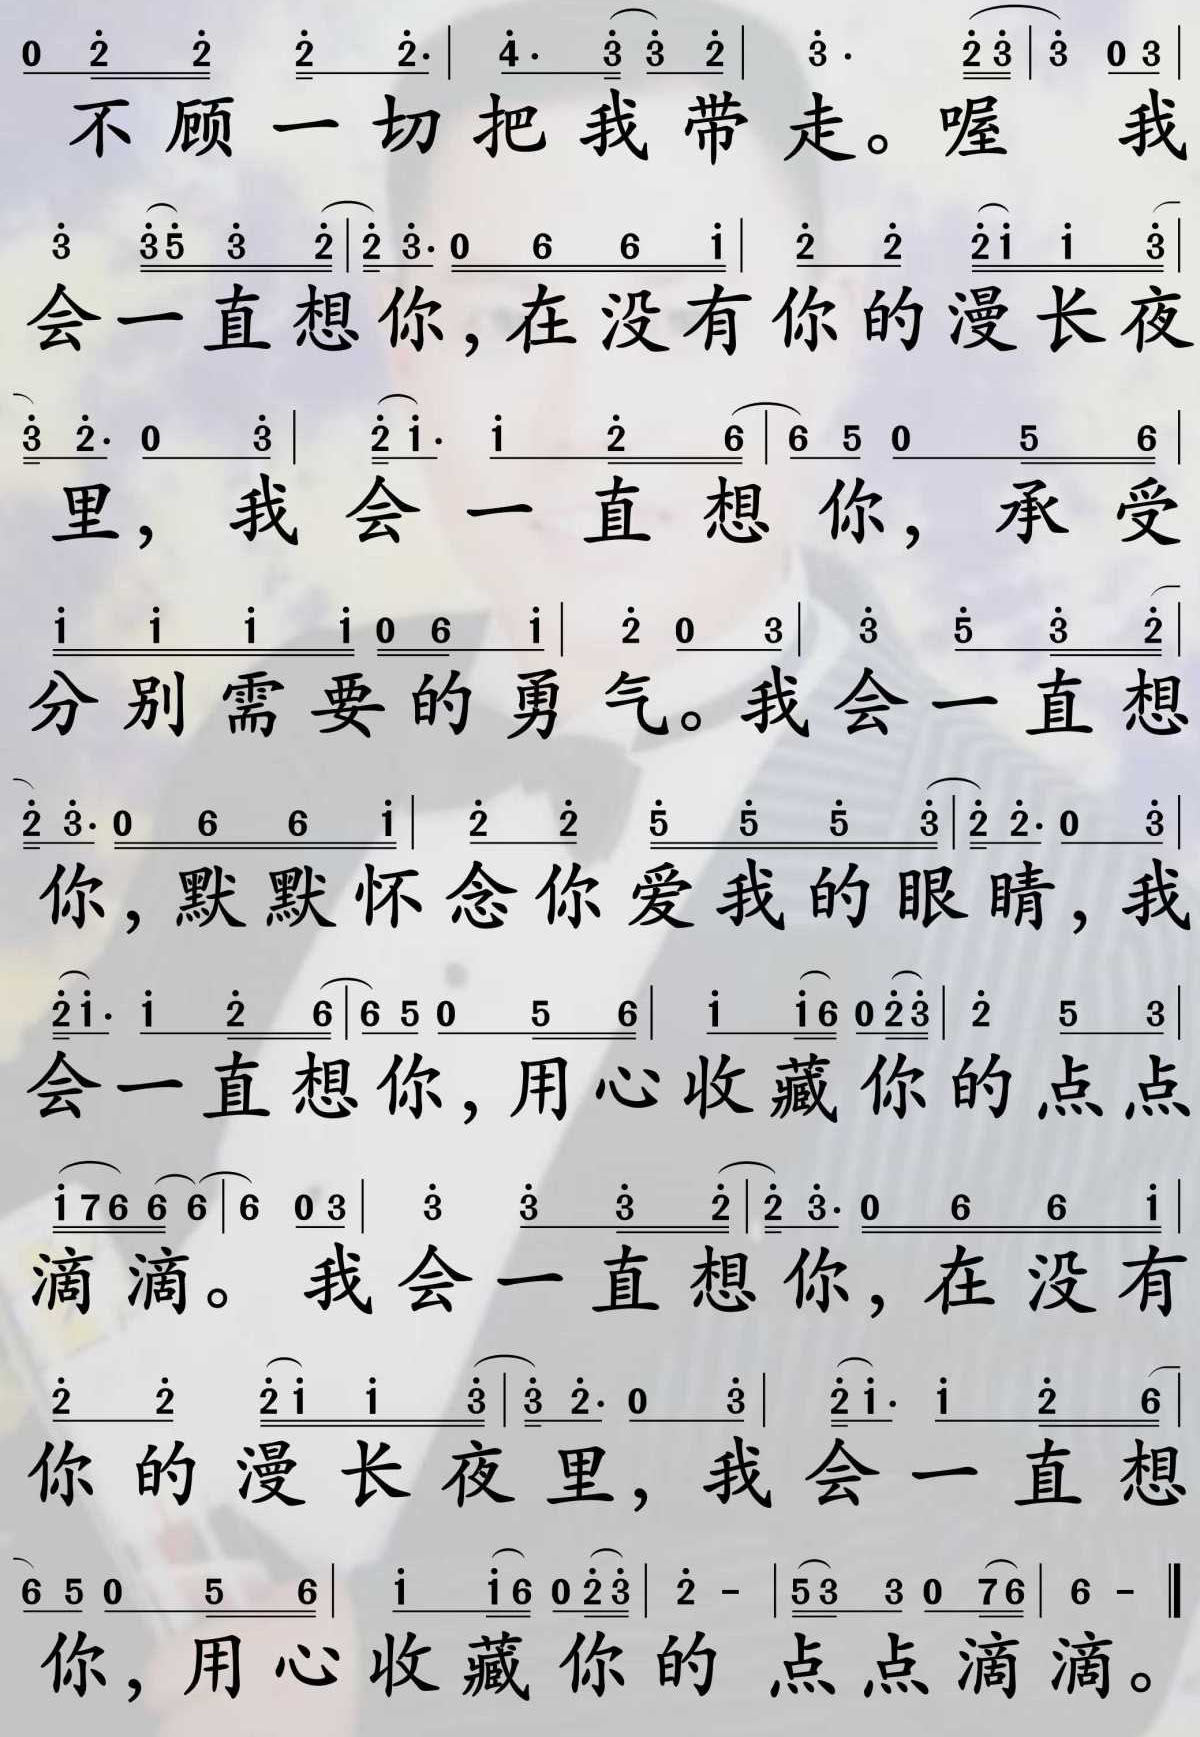 0 2̇ 2̇ 2̇ 2̇· | 4̇· 3̇ 3̇ 2̇ | 3̇· 2̇ 3̇ | 3̇ 0 3 |
不顾一切把我带走。喔 我
3̇ 3̇ 5̇ 3̇ 2̇ | 2̇ 3̇· 0 6 6 1̇ | 2̇ 2̇ 2̇ 1̇ 1̇ 3̇ |
会一直想你,在没有你的漫长夜
3̇ 2̇· 0 3̇ | 2̇ 1̇· 1̇ 2̇ 6 | 6 5 0 5 6 |
里,我会一直想你,承受
1̇ 1̇ 1̇ 1̇ 0 6 1̇ | 2̇ 0 3 | 3̇ 5̇ 3̇ 2̇ |
分别需要的勇气。我会一直想
2̇ 3̇· 0 6 6 1̇ | 2̇ 2̇ 5̇ 5̇ 5̇ 3̇ | 2̇ 2̇· 0 3̇ |
你,默默怀念你爱我的眼睛,我
2̇ 1̇· 1̇ 2̇ 6 | 6 5 0 5 6 | 1̇ 1̇ 6 0 2̇ 3̇ | 2̇ 5 3 |
会一直想你,用心收藏你的点点
1̇ 7 6 6 6 | 6 0 3 | 3̇ 3̇ 3̇ 2̇ | 2̇ 3̇· 0 6 6 1̇ |
滴滴。 我会一直想你,在没有
2̇ 2̇ 2̇ 1̇ 1̇ 3̇ | 3̇ 2̇· 0 3̇ | 2̇ 1̇· 1̇ 2̇ 6 |
你的漫长夜里,我会一直想
6 5 0 5 6 | 1̇ 1̇ 6 0 2̇ 3̇ | 2̇ - | 5 3 3 0 7 6 | 6 - ‖
你,用心收藏你的 点点滴滴。